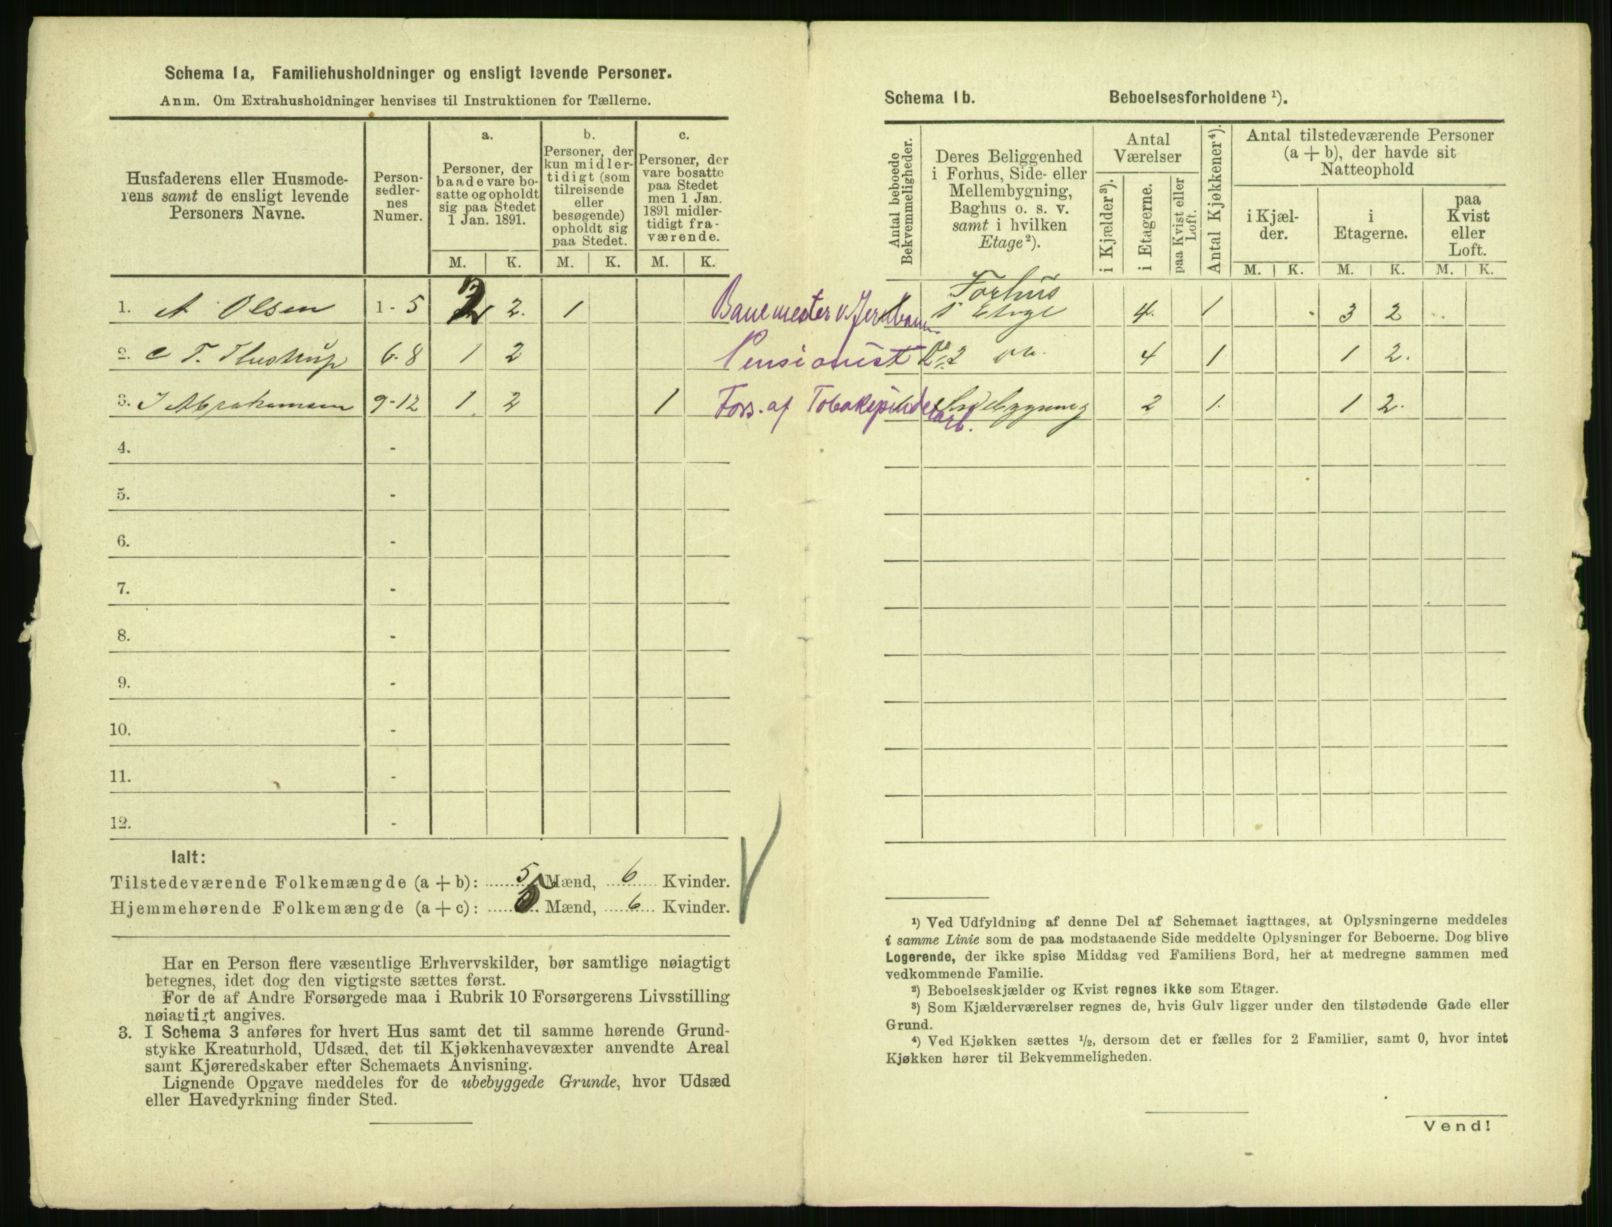 Schema 1a, Familiehusholdninger og ensligt levende Personer.
Anm. Om Extrahusholdninger henvises til Instruktionen for Tællerne.
Husfaderens eller Husmoderens samt de ensligt levende Personers Navne.
Personsedlernes Numer.
a.
Personer, der baade vare bosatte og opholdt sig paa Stedet 1 Jan. 1891.
b.
Personer, der kun midlertidigt (som tilreisende eller besøgende) opholdt sig paa Stedet.
c.
Personer, der vare bosatte paa Stedet men 1 Jan. 1891 midlertidigt fraværende.
M. K. M. K. M. K.
1. A Olsen 1-5 2 2. 1 Banemester v. Jernban
2. C T. Thustrup 6-8 1 2 Pensionist
3. I Abrahamsen 9-12 1 2 1 Fors. af Tobakspinderarb.
4. -
5. -
6. -
7. -
8. -
9. -
10. -
11. -
12. -
Ialt:
Tilstedeværende Folkemængde (a + b): 5 Mænd, 6 Kvinder.
Hjemmehørende Folkemængde (a + c): 5 Mænd, 6 Kvinder.
Har en Person flere væsentlige Erhvervskilder, bør samtlige nøiagtigt
betegnes, idet dog den vigtigste sættes først.
For de af Andre Forsørgede maa i Rubrik 10 Forsørgerens Livsstilling
nøiagtigt angives.
3. I Schema 3 anføres for hvert Hus samt det til samme hørende Grund-
stykke Kreaturhold, Udsæd, det til Kjøkkenhavevæxter anvendte Areal
samt Kjøreredskaber efter Schemaets Anvisning.
Lignende Opgave meddeles for de ubebyggede Grunde, hvor Udsæd
eller Havedyrkning finder Sted.
Schema 1b. Beboelsesforholdene ¹).
Antal beboede Bekvemmeligheder.
Deres Beliggenhed i Forhus, Side- eller Mellembygning, Baghus o. s. v. samt i hvilken Etage²).
Antal Værelser
i Kjælder³).
i Etagerne.
paa Kvist eller Loft.
Antal Kjøkkener⁴).
Antal tilstedeværende Personer (a + b), der havde sit Natteophold
i Kjælder.
i Etagerne.
paa Kvist eller Loft.
M. K. M. K. M. K.
Forhus
Etage 4. 1 3 2
2 4 1 1 2.
Sidebygning 2 1. 1 2.
¹) Ved Udfyldning af denne Del af Schemaet iagttages, at Oplysningerne meddeles
i samme Linie som de paa modstaaende Side meddelte Oplysninger for Beboerne. Dog blive
Logerende, der ikke spise Middag ved Familiens Bord, her at medregne sammen med
vedkommende Familie.
²) Beboelseskjælder og Kvist regnes ikke som Etager.
³) Som Kjælderværelser regnes de, hvis Gulv ligger under den tilstødende Gade eller
Grund.
⁴) Ved Kjøkken sættes ½, dersom det er fælles for 2 Familier, samt 0, hvor intet
Kjøkken hører til Bekvemmeligheden.
Vend!